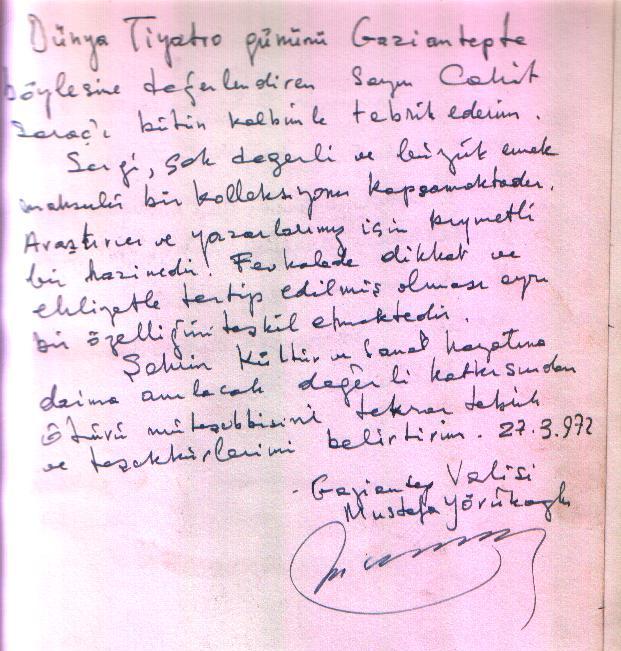 Dünya Tiyatro gününü Gaziantepte
böylesine değerlendiren Sayın Cahit
Saraç'ı bütün kalbimle tebrik ederim.
Sergi, çok değerli ve büyük emek
mahsulü bir kolleksiyonu kapsamaktadır.
Araştırıcı ve yazarlarımız için kıymetli
bir hazinedir. Fevkalade dikkat ve
ehliyetle tertip edilmiş olması ayrı
bir özelliğini teşkil etmektedir.
Şehrin Kültür ve Sanat hayatına
daima anılacak değerli katkısından
ötürü müteşebbisini tekrar tebrik
ve teşekkürlerimi belirtirim. 27.3.972
- Gaziantep Valisi
Mustafa Yörükoğlu